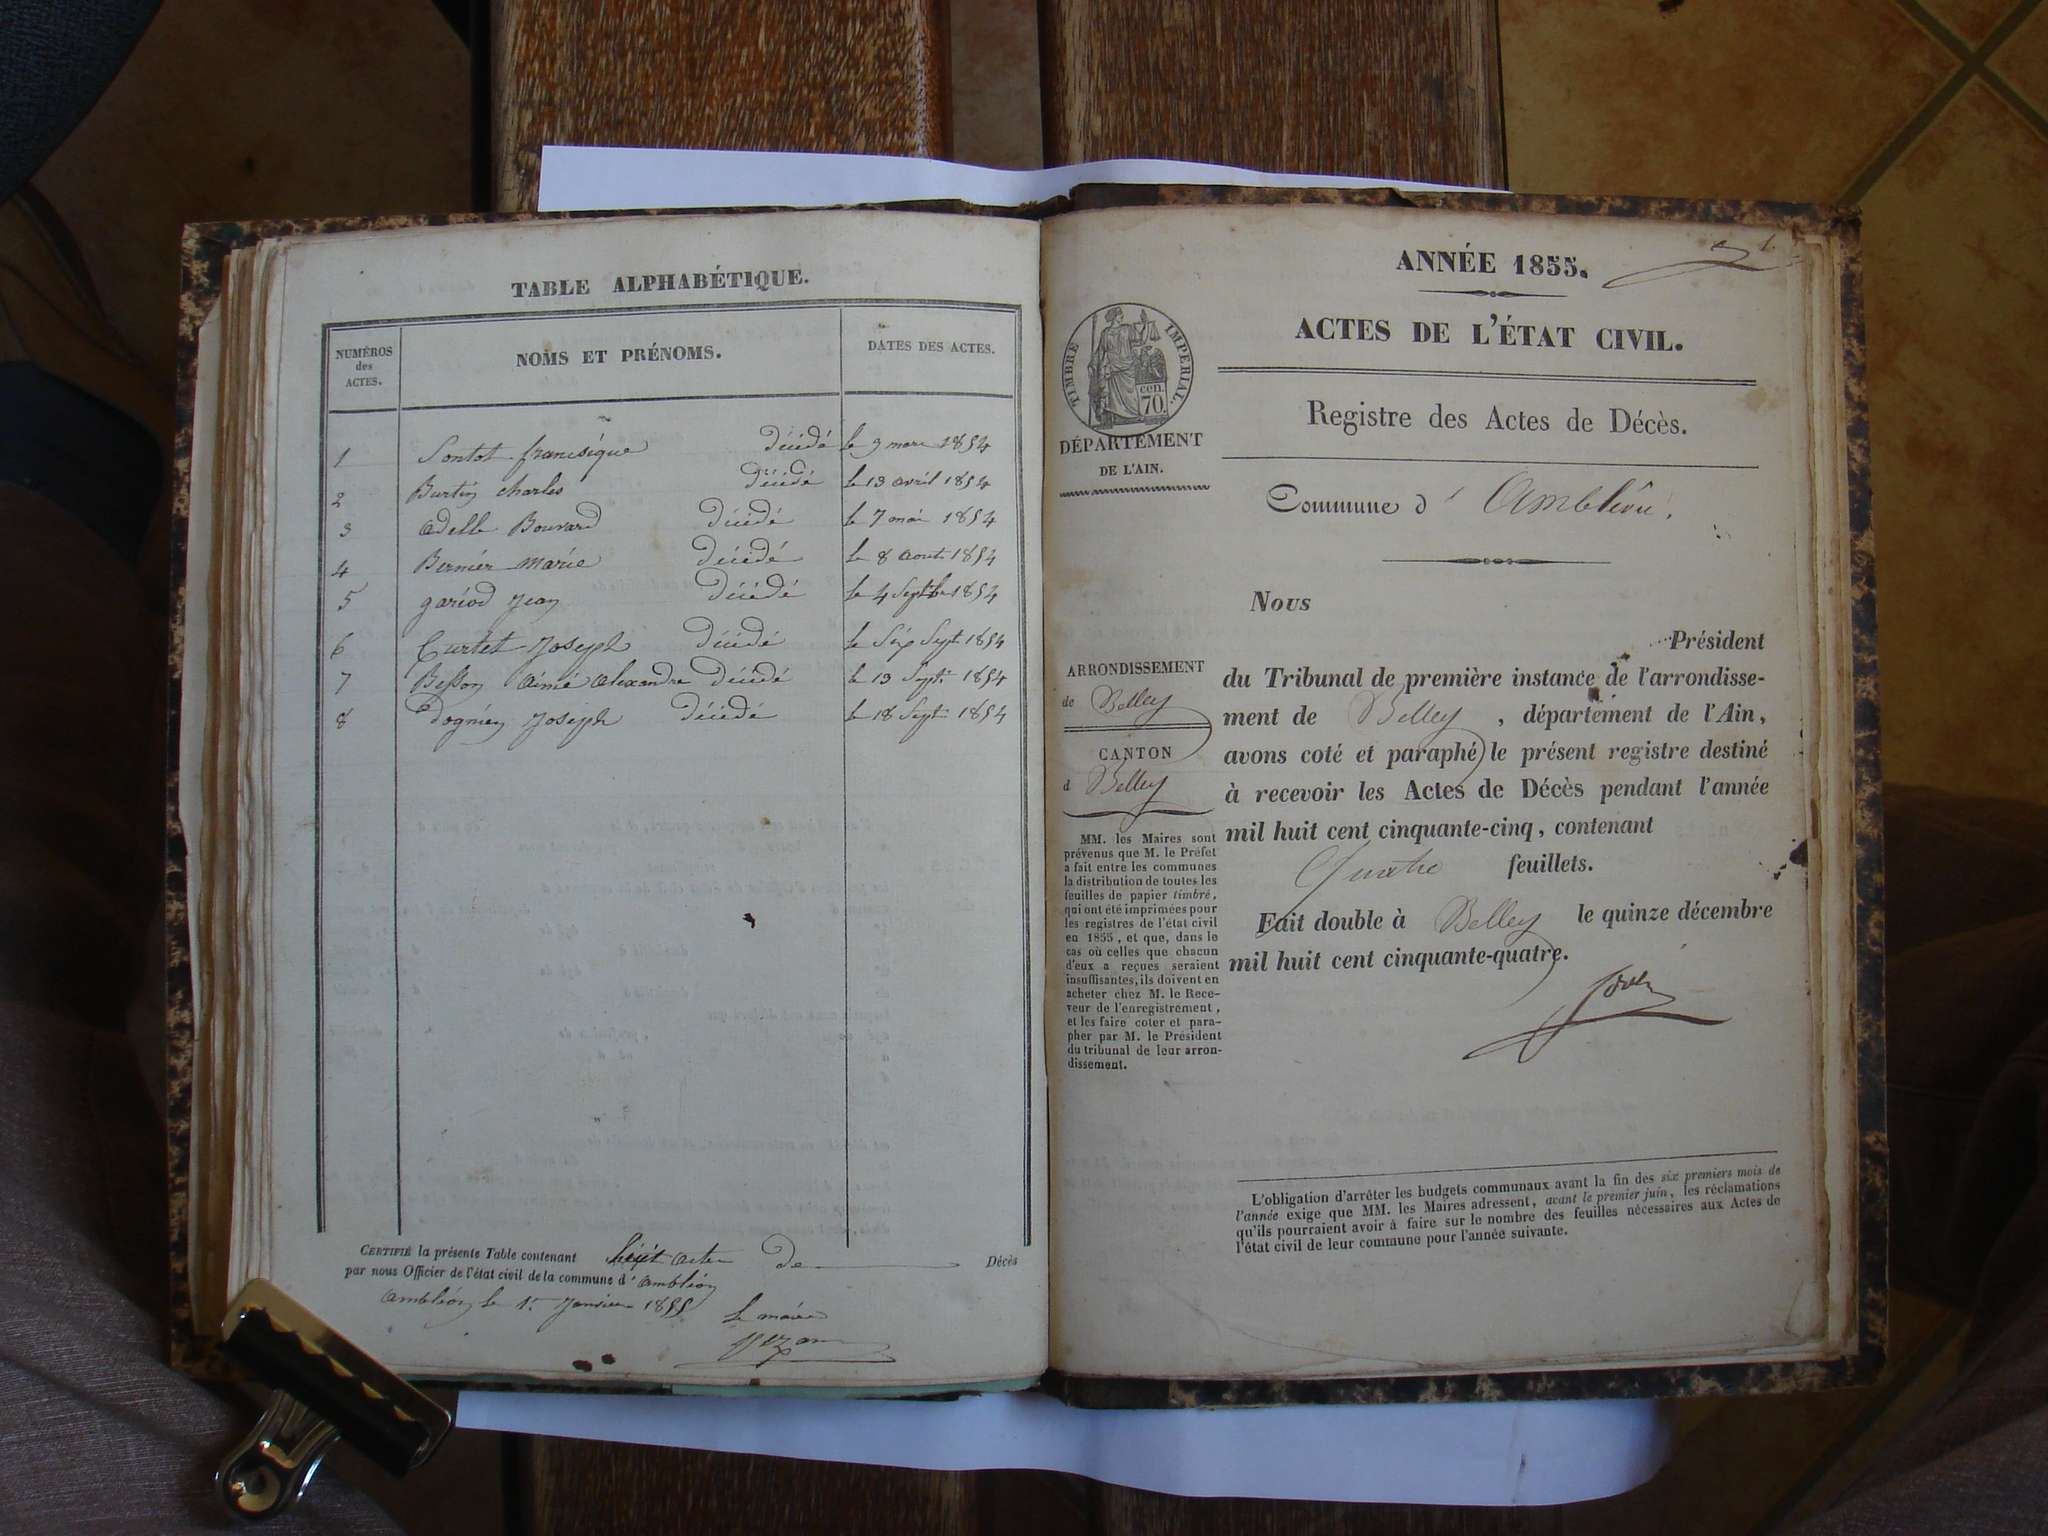 TABLE ALPHABÉTIQUE.
NUMÉROS des ACTES.
NOMS ET PRÉNOMS.
DATES DES ACTES.
1 Sontot francisque Décédé le 9 mars 1854
2 Burtin charles Décédé le 13 avril 1854
3 adelle Bouvard Décédé le 7 mai 1854
4 Bernier marie Décédé le 8 aout 1854
5 gariod Jean Décédé le 4 Sept 1854
6 Curtet Joseph Décédé le Six Sept 1854
7 Besson aimé alexandre Décédé le 13 Sept. 1854
8 Dognien Joseph Décédé le 18 Sept 1854
CERTIFIÉ la présente Table contenant huit actes de Décès
par nous Officier de l'état civil de la commune d'ambléon
ambléon le 1er Janvier 1855
le maire
1.
ANNÉE 1855.
ACTES DE L'ÉTAT CIVIL.
Registre des Actes de Décès.
Commune d' Ambléon.
TIMBRE IMPERIAL.
cen.
70.
DÉPARTEMENT
DE L'AIN.
ARRONDISSEMENT
de Belley
CANTON
d Belley
MM. les Maires sont
prévenus que M. le Préfet
a fait entre les communes
la distribution de toutes les
feuilles de papier timbré,
qui ont été imprimées pour
les registres de l'état civil
en 1855, et que, dans le
cas où celles que chacun
d'eux a reçues seraient
insuffisantes, ils doivent en
acheter chez M. le Rece-
veur de l'enregistrement,
et les faire coter et para-
pher par M. le Président
du tribunal de leur arron-
dissement.
Nous
Président
du Tribunal de première instance de l'arrondisse-
ment de Belley, département de l'Ain,
avons coté et paraphé le présent registre destiné
à recevoir les Actes de Décès pendant l'année
mil huit cent cinquante-cinq, contenant
Quatre feuillets.
Fait double à Belley le quinze décembre
mil huit cent cinquante-quatre.
L'obligation d'arrêter les budgets communaux avant la fin des six premiers mois de
l'année exige que MM. les Maires adressent, avant le premier juin, les réclamations
qu'ils pourraient avoir à faire sur le nombre des feuilles nécessaires aux Actes de
l'état civil de leur commune pour l'année suivante.